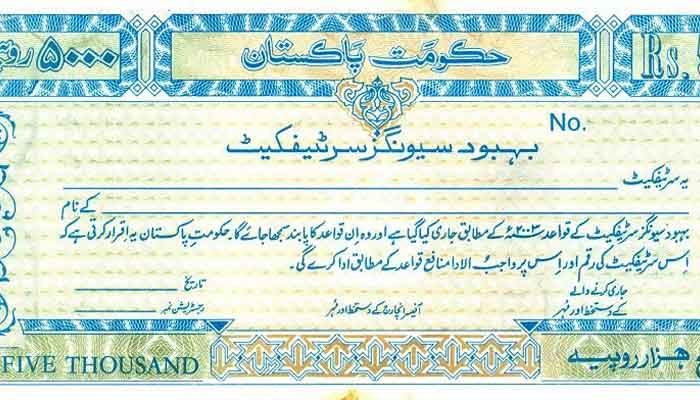 ۵۰۰۰ حکومت پاکستان Rs.
No.
بہبود سیونگز سرٹیفکیٹ
یہ سرٹیفکیٹ
کے نام
بہبود سیونگز سرٹیفکیٹ کے قواعد ۲۰۰۳ء کے مطابق جاری کیا گیا ہے اور وہ ان قواعد کا پابند سمجھا جائے گا۔ حکومت پاکستان یہ اقرار کرتی ہے کہ
اس سرٹیفکیٹ کی رقم اور اس پر واجب الادا منافع قواعد کے مطابق ادا کرے گی۔
جاری کرنے والے تاریخ
کے دستخط اور مُہر آفیسر انچارج کے دستخط اور مُہر رجسٹریشن نمبر
FIVE THOUSAND ہزار روپیہ